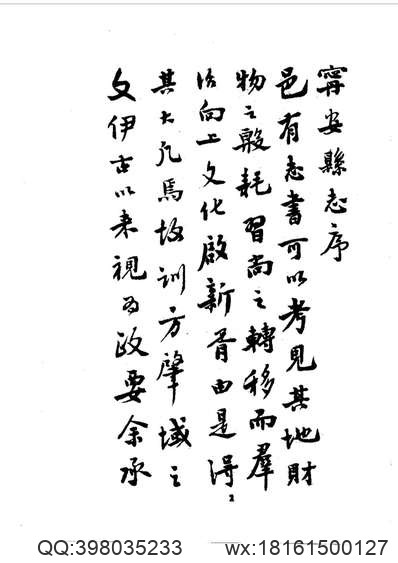 寗安縣志序
邑有志書可以考見其地財
物之殷耗習尚之轉移而羣
治向上文化啟新胥由是得
其大凡焉故訓方肇域之
文伊古以来視為政要余承
QQ:398035233 wx:18161500127